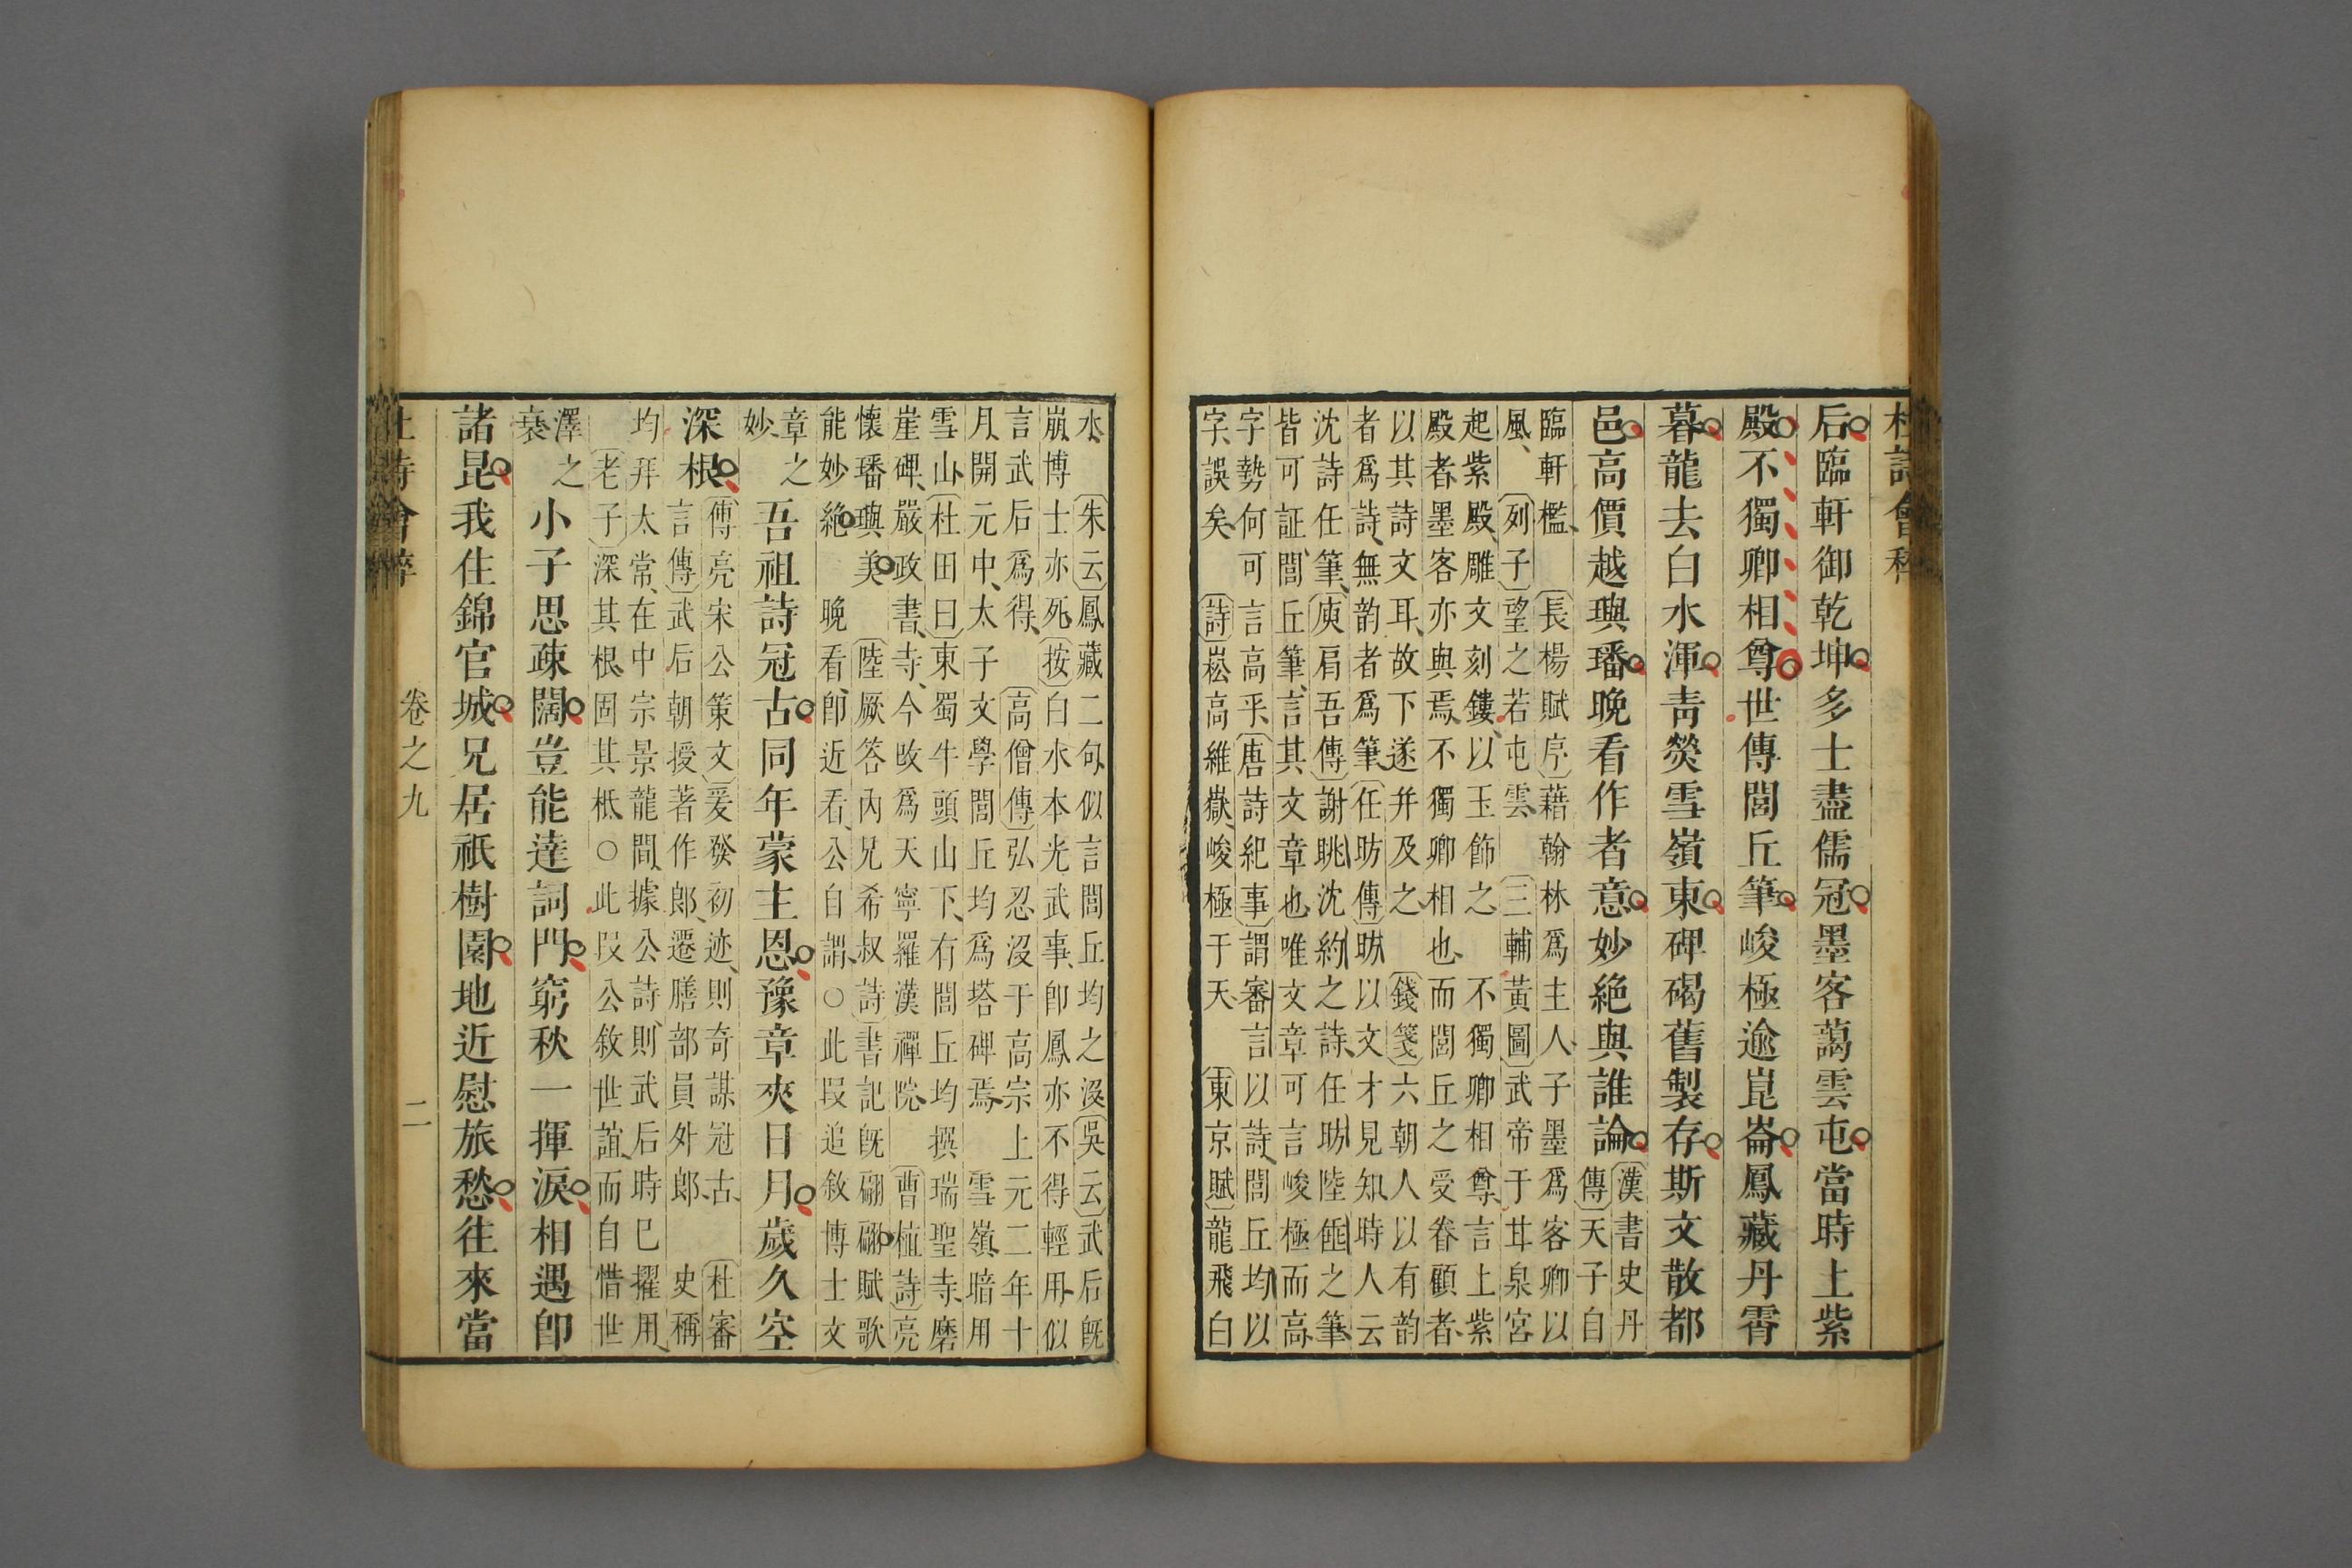 杜詩會稡
后臨軒御乾坤多士盡儒冠墨客藹雲屯當時上紫
殿不獨卿相尊世傳閭丘筆峻極逾崑崙鳳藏丹霄
暮龍去白水渾靑熒雪嶺東碑碣舊製存斯文散都
邑高價越璵璠晚看作者意妙絕與誰論
漢書史丹
傳天子自
臨軒檻長楊賦序藉翰林爲主人子墨爲客卿以
風列子望之若屯雲三輔黃圖武帝于甘泉宮
起紫殿雕文刻鏤以玉飾之不獨卿相尊言上紫
殿者墨客亦與焉不獨卿相也而閭丘之受眷顧者
以其詩文耳故下遂幷及之錢箋六朝人以有韵
者爲詩無韵者爲筆任昉傳昉以文才見知時人云
沈詩任筆庾肩吾傳謝眺沈約之詩任昉陸倕之筆
皆可証閭丘筆言其文章也唯文章可言峻極而高
字勢何可言高乎唐詩紀事謂審言以詩閭丘均以
字誤矣詩崧高維嶽峻極于天東京賦龍飛白
水朱云鳳藏二句似言閭丘均之沒吳云武后旣
崩博士亦死按白水本光武事卽鳳亦不得輕用似
言武后爲得高僧傳弘忍沒于高宗上元二年十
月開元中太子文學閭丘均爲塔碑焉雪嶺暗用
雪山杜田曰東蜀牛頭山下有閭丘均撰瑞聖寺磨
崖碑嚴政書寺今攺爲天寧羅漢禪院曹植詩亮
懷璠璵美陸厥答內兄希叔詩書記旣翩翩賦歌
能妙絕晚看卽近看公自謂○此叚追敘博士文
章之
妙
吾祖詩冠古同年蒙主恩豫章夾日月歲久空
深根
傅亮宋公策文爰發初迹則奇謀冠古杜審
言傳武后朝授著作郎遷膳部員外郎史稱
均拜太常在中宗景龍間據公詩則武后時已擢用
老子深其根固其柢○此叚公敘世誼而自惜世
澤之
衰
小子思疎闊豈能達詞門窮秋一揮淚相遇卽
諸昆我住錦官城兄居祇樹園地近慰旅愁往來當
杜詩會稡 卷之九 二